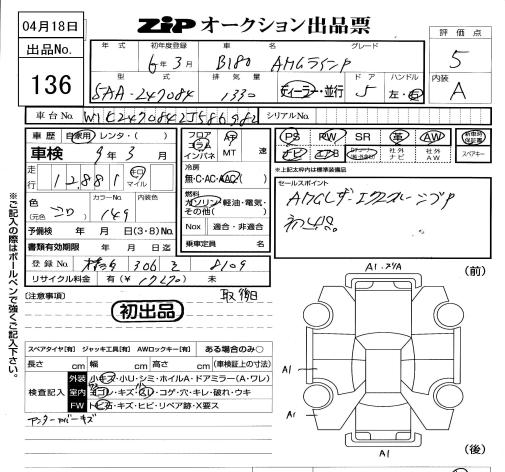 04月18日
ZIP オークション出品票
出品No.
136
年式 初年度登録 車名 グレード
6年3月 B180 AMGラインP
評価点
5
型式 排気量 ドア ハンドル
5AA-247084 1330 ディーラー・並行 5 左・右
内装
A
車台No. W1K2470842J586982 シリアルNo.
車歴 自家用・レンタ・( )
車検 9年3月
走行 12,881 キロ マイル
色 (元色 ) カラーNo. 149 内装色
予備検 年 月 日(3・8)No.
書類有効期限 年 月 日迄
登録No. 306 8109
リサイクル料金 有(¥ ) 未
フロア コラム インパネ AT MT 速
冷房
無・C・AC・AAC
燃料
ガソリン・軽油・電気・その他( )
Nox 適合・非適合
乗車定員 名
PS PW SR 革 AW 新車時保証書
ナビ 社外ナビ 社外AW スペアキー
*上記太枠内は標準装備品
セールスポイント
AMGレザーエクスクルーシブP
※ご記入の際はボールペンで強くご記入下さい。
[注意事項] 取後日
初出品
スペアタイヤ[有] ジャッキ工具[有] AWロックキー[有] ある場合のみ○
長さ cm 幅 cm 高さ cm (車検証上の寸法)
検査記入
外装 小キズ・小U・シミ・ホイルA・ドアミラー(A・ワレ)
室内 ヨゴレ・キズ・スレ・コゲ・穴・キレ・破れ・ウキ
FW トビ石・キズ・ヒビ・リペア跡・X要ス
アンダーカバーキズ
A1・スリA
(前)
A1
A1
A1
(後)